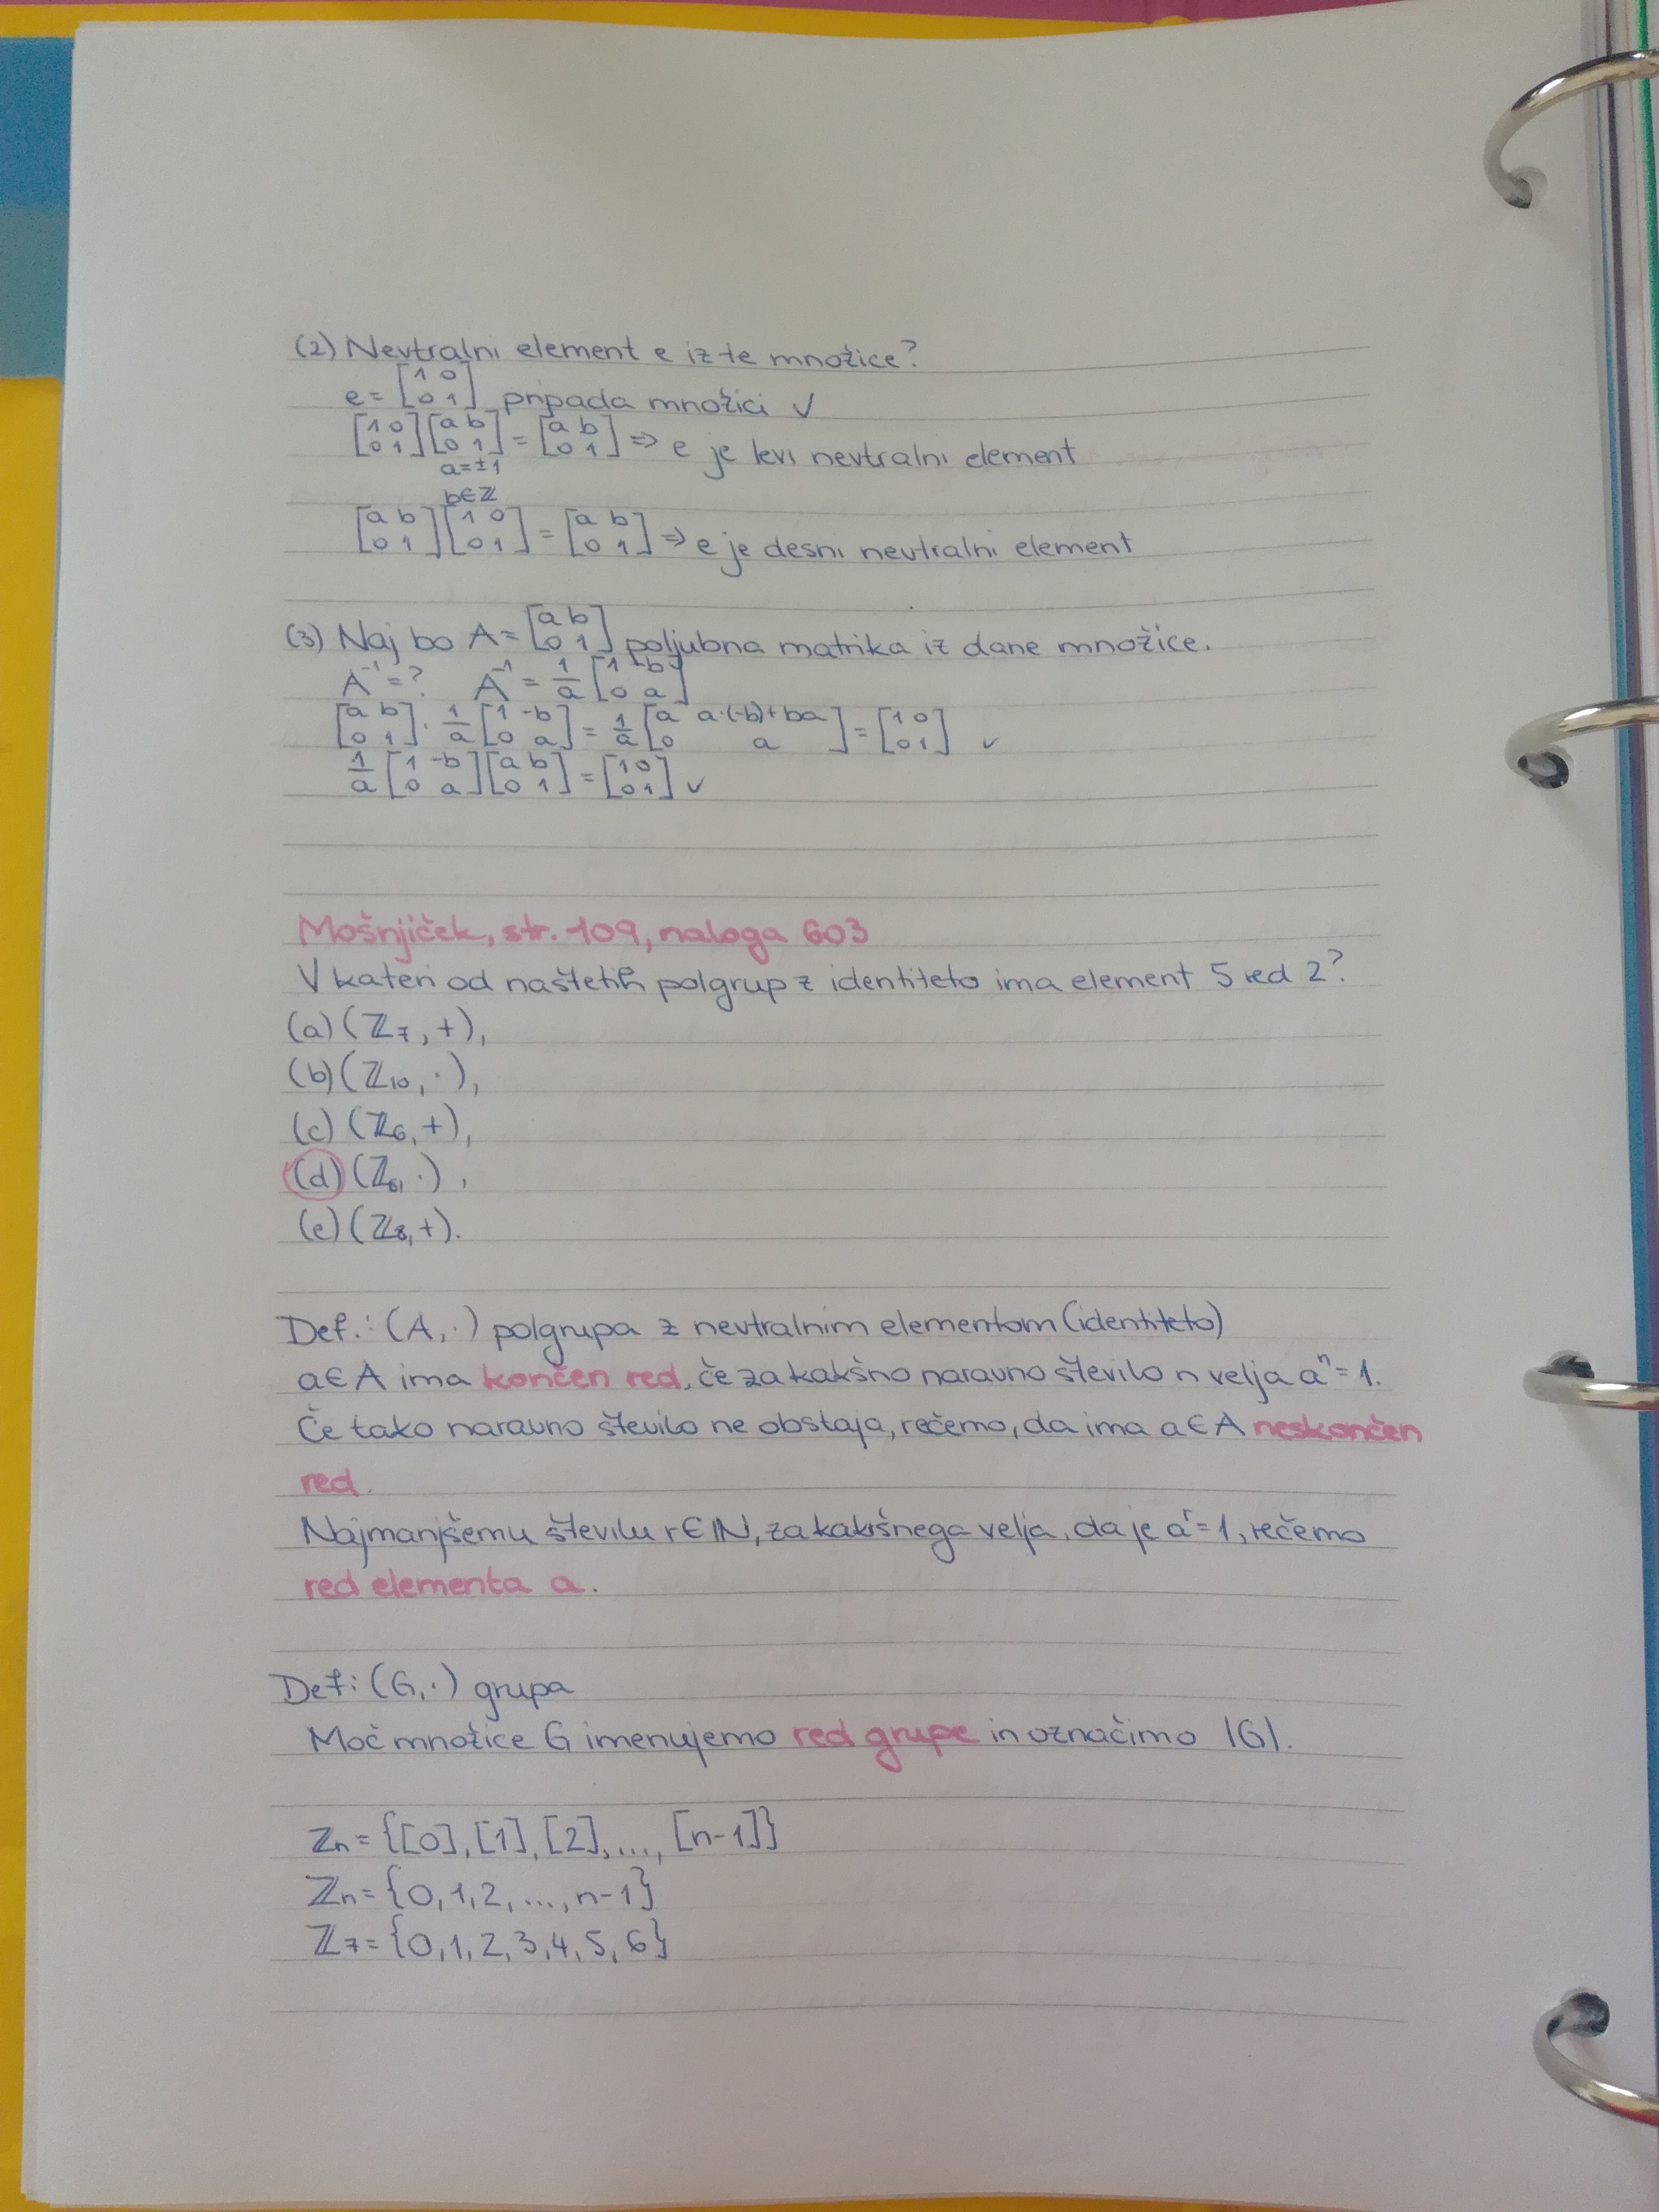 (2) Nevtralni element e iz te množice?
e = [1 0; 0 1] pripada množici ✓
[1 0; 0 1][a b; 0 1] = [a b; 0 1] ⇒ e je levi nevtralni element
a=±1
b∈ℤ
[a b; 0 1][1 0; 0 1] = [a b; 0 1] ⇒ e je desni nevtralni element
(3) Naj bo A = [a b; 0 1] poljubna matrika iz dane množice.
A⁻¹ = ? A⁻¹ = 1/a [1 -b; 0 a]
[a b; 0 1] · 1/a [1 -b; 0 a] = 1/a [a a·(-b)+ba; 0 a] = [1 0; 0 1] ✓
1/a [1 -b; 0 a][a b; 0 1] = [1 0; 0 1] ✓
Mošnjiček, str. 109, naloga 603
V kateri od naštetih polgrup z identiteto ima element 5 red 2?
(a) (ℤ₇, +),
(b) (ℤ₁₀, ·),
(c) (ℤ₆, +),
(d) (ℤ₆, ·),
(e) (ℤ₈, +).
Def.: (A, ·) polgrupa z nevtralnim elementom (identiteto)
a∈A ima končen red, če za kakšno naravno število n velja aⁿ = 1.
Če tako naravno število ne obstaja, rečemo, da ima a∈A neskončen
red.
Najmanjšemu številu r∈ℕ, za kakršnega velja, da je aʳ = 1, rečemo
red elementa a.
Def: (G, ·) grupa
Moč množice G imenujemo red grupe in označimo |G|.
ℤₙ = {[0], [1], [2], ..., [n-1]}
ℤₙ = {0, 1, 2, ..., n-1}
ℤ₇ = {0, 1, 2, 3, 4, 5, 6}